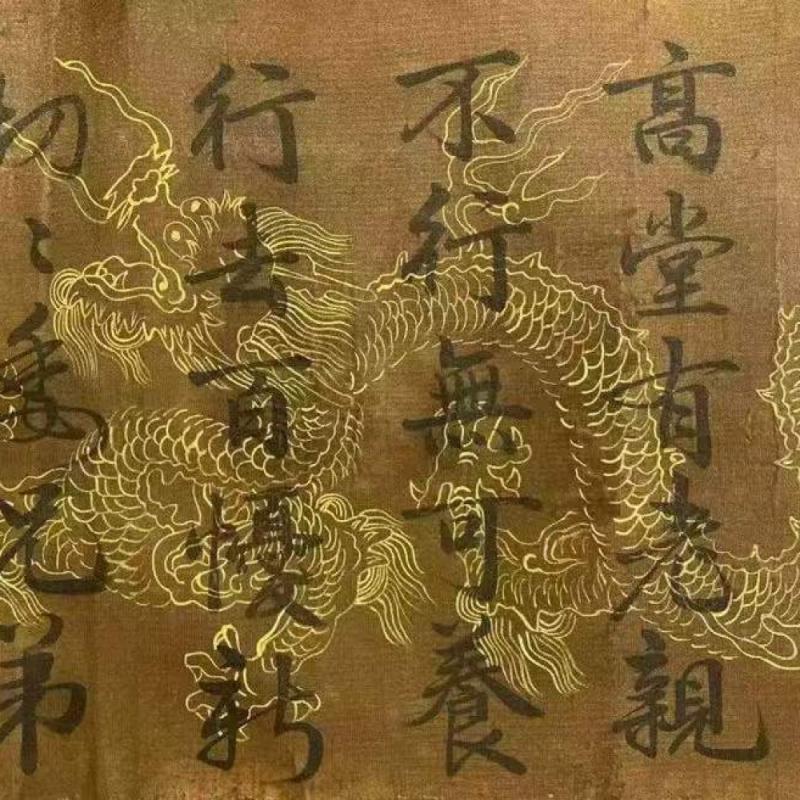 髙堂有老親
不行無可養
行去百懮新
切〻委兄弟